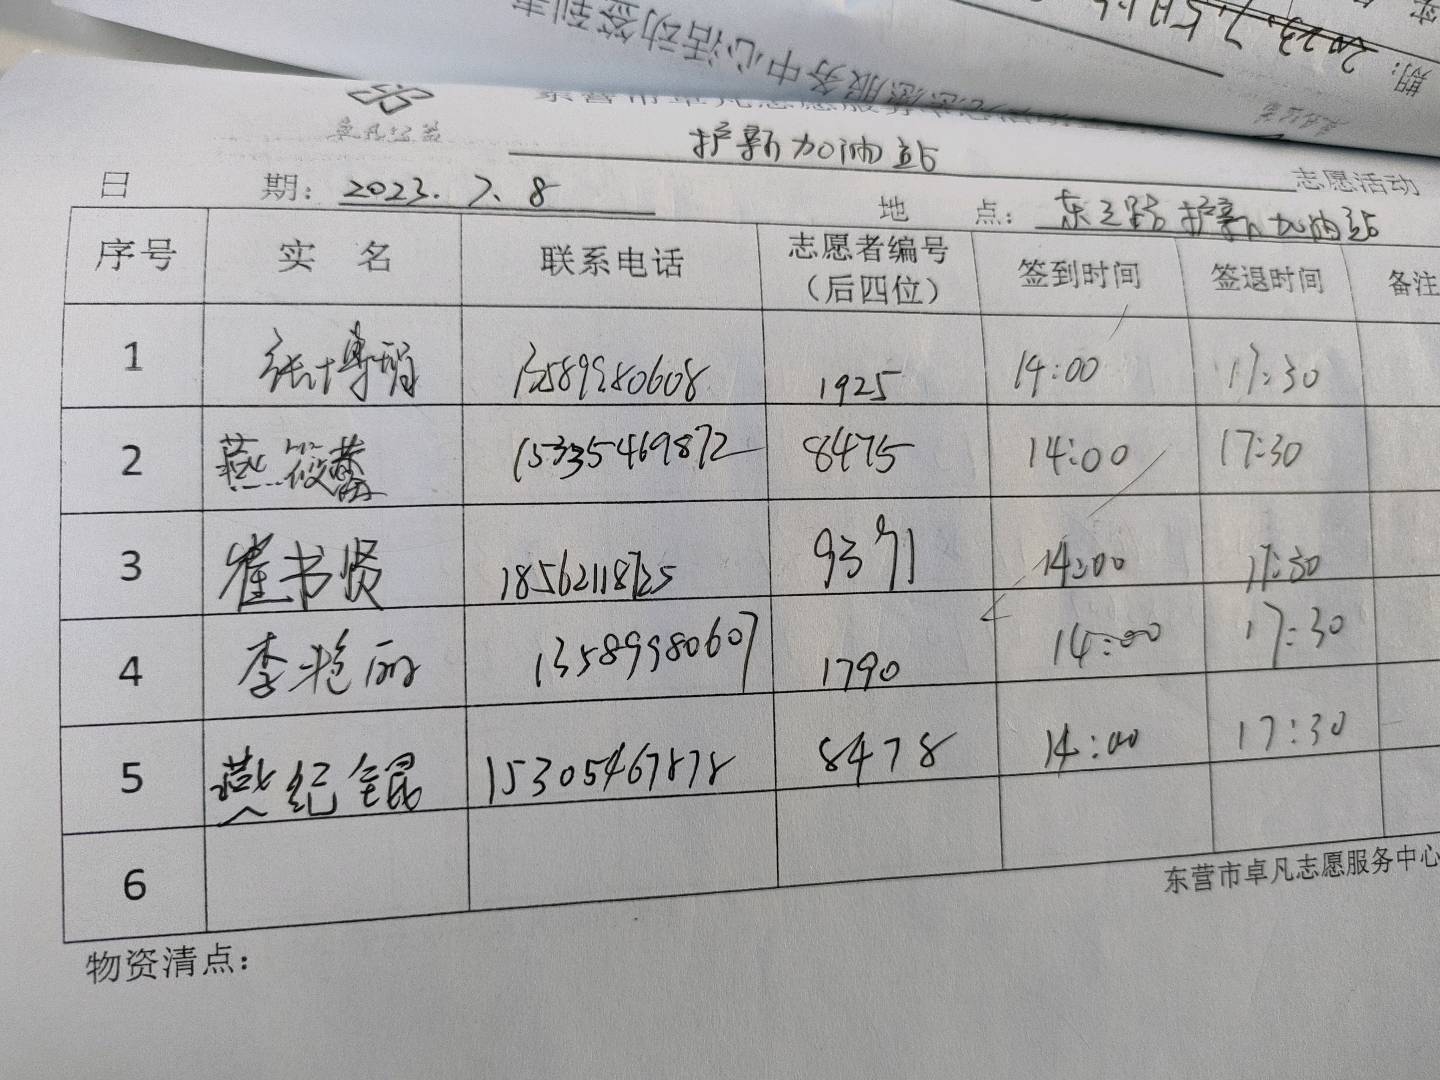 期：2023.7.5日下午
志愿服务中心活动签到表
卓凡公益
东营市卓凡志愿服务中心活动签到表
护薪加油站 志愿活动
日 期：2023.7.8 地 点：东之路护薪加油站
序号 实 名 联系电话 志愿者编号（后四位） 签到时间 签退时间 备注
1 张博明 13589980608 1925 14:00 17:30
2 燕筱蕾 15335469872 8475 14:00 17:30
3 崔书贤 18562118725 9371 14:00 17:30
4 李艳丽 13589980607 1790 14:00 17:30
5 燕纪锟 15305467878 8478 14:00 17:30
6
东营市卓凡志愿服务中心
物资清点：